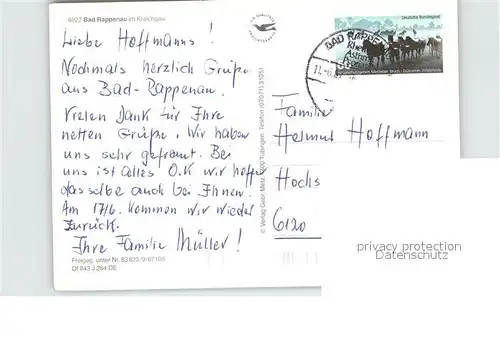 6927 Bad Rappenau im Kraichgau
Liebe Hoffmanns!
Nochmals herzlich Grüße
aus Bad-Rappenau.
Vielen Dank für Ihre
netten Grüße. Wir haben
uns sehr gefreut. Bei
uns ist alles O.K wir hoffen
dasselbe auch bei Ihnen.
Am 17/6. kommen wir wieder
zurück.
Ihre Familie Müller!
Freigeg. unter Nr.
Of 643 J 264 DE
© Verlag Gebr. Metz, Tübingen, Telefon (07071) 31051
Deutsche Bundespost
BAD RAPPE
Familie
Helmut Hoffmann
Höchs
6120
privacy protection
Datenschutz